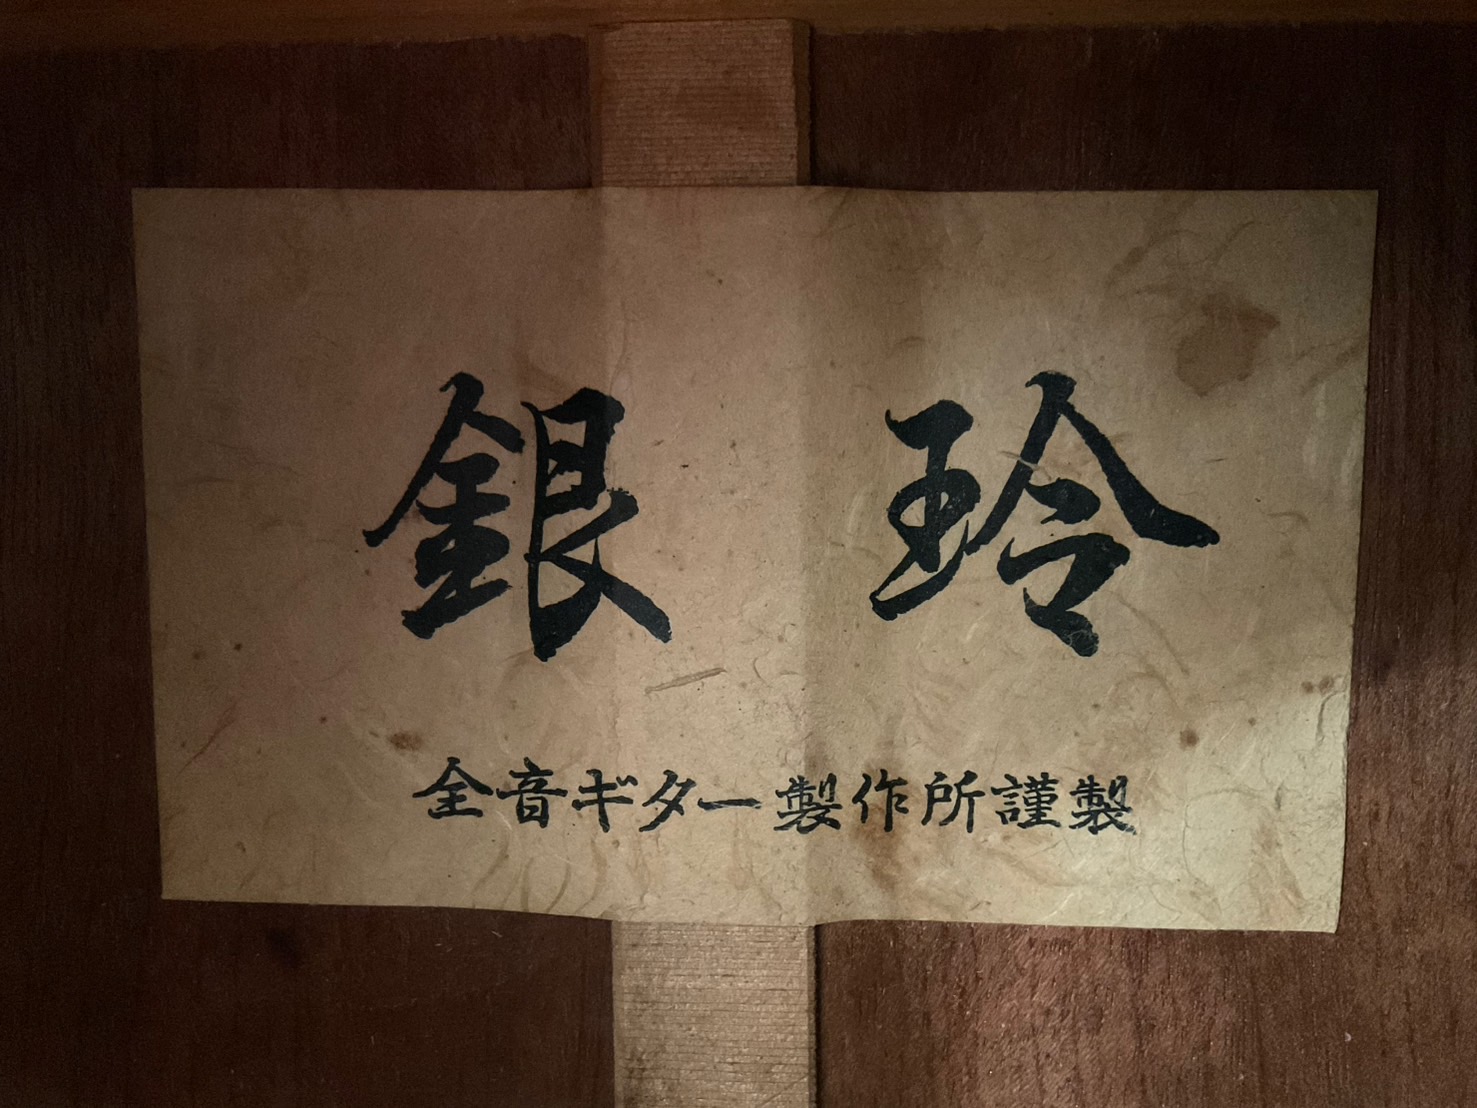 銀玲
全音ギター製作所謹製